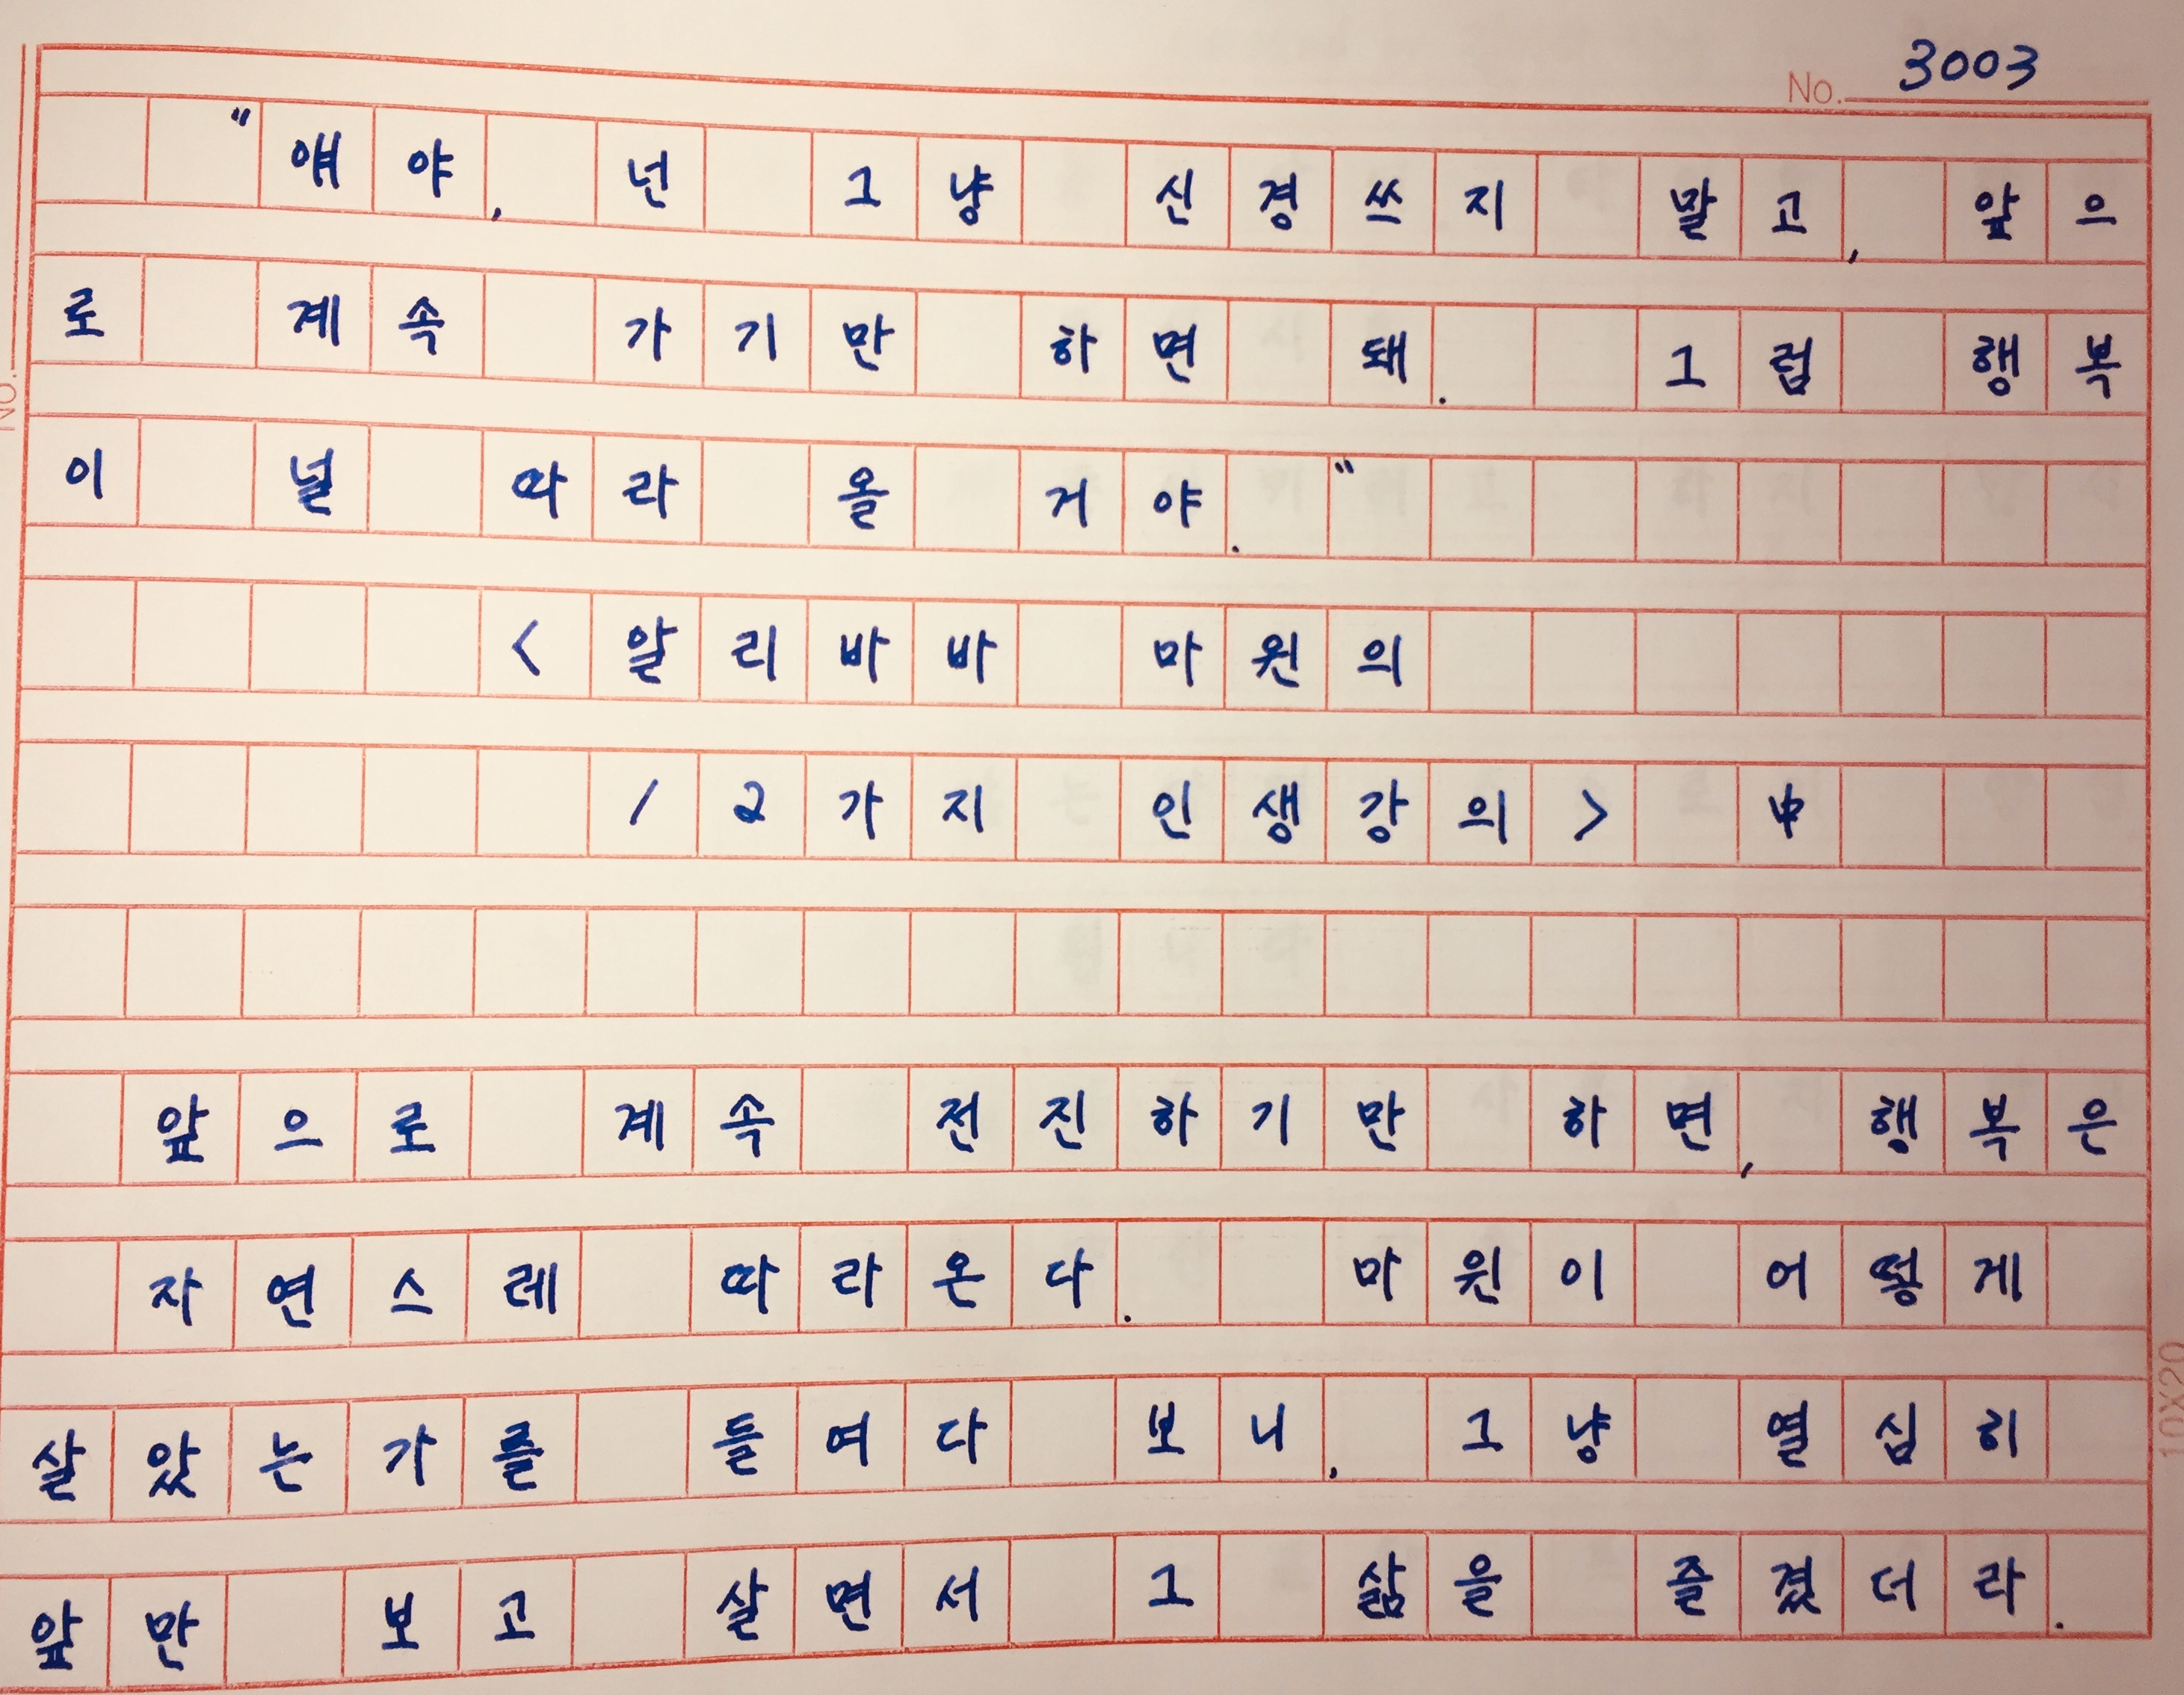 No. 3003
"얘야, 넌 그냥 신경쓰지 말고, 앞으
로 계속 가기만 하면 돼. 그럼 행복
이 널 따라 올 거야."
<알리바바 마윈의
12가지 인생강의> 中
앞으로 계속 전진하기만 하면, 행복은
자연스레 따라온다. 마윈이 어떻게
살았는가를 들여다 보니, 그냥 열심히
앞만 보고 살면서 그 삶을 즐겼더라.
NO.
10X20